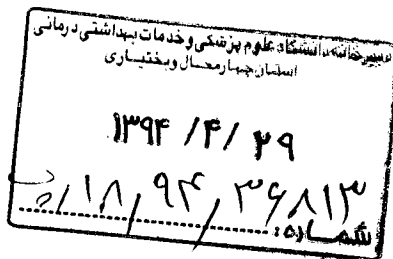 دبیرخانه دانشگاه علوم پزشکی و خدمات بهداشتی درمانی
استان چهارمحال و بختیاری
۱۳۹۴ /۴/ ۲۹
۱۸/ ۹۴/ ۳۶۸۱۳
شماره: